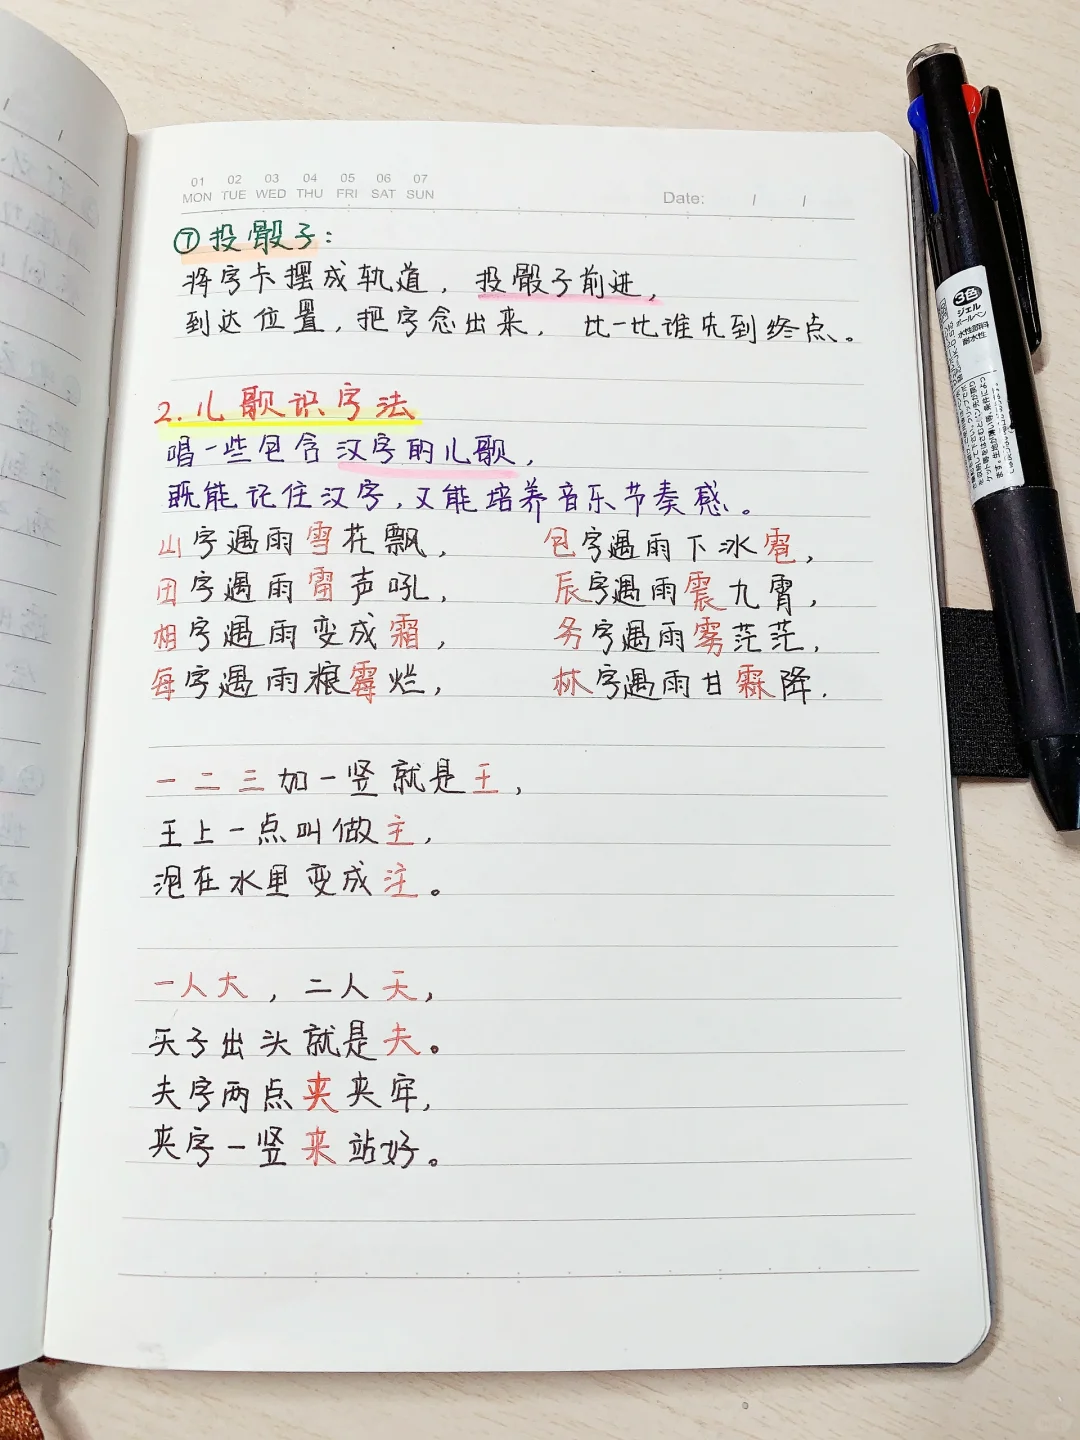 01 02 03 04 05 06 07
MON TUE WED THU FRI SAT SUN
Date: / /
⑦投骰子：
将字卡摆成轨道，投骰子前进，
到达位置，把字念出来，比一比谁先到终点。
2.儿歌识字法
唱一些包含汉字的儿歌，
既能记住汉字，又能培养音乐节奏感。
山字遇雨雪花飘，包字遇雨下冰雹，
田字遇雨雷声吼，辰字遇雨震九霄，
相字遇雨变成霜，务字遇雨雾茫茫，
每字遇雨粮霉烂，林字遇雨甘霖降.
一二三加一竖就是王，
王上一点叫做主，
泡在水里变成注。
一人大，二人天，
天子出头就是夫。
夫字两点夹夹牢，
夹字一竖来站好。
3色
ジェル
ボールペン
水性顔料
耐水性